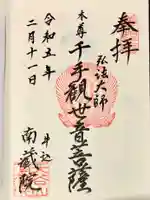 奉拝
弘法大師
本尊 千手観世音菩薩
令和五年
二月十一日
井込
南蔵院